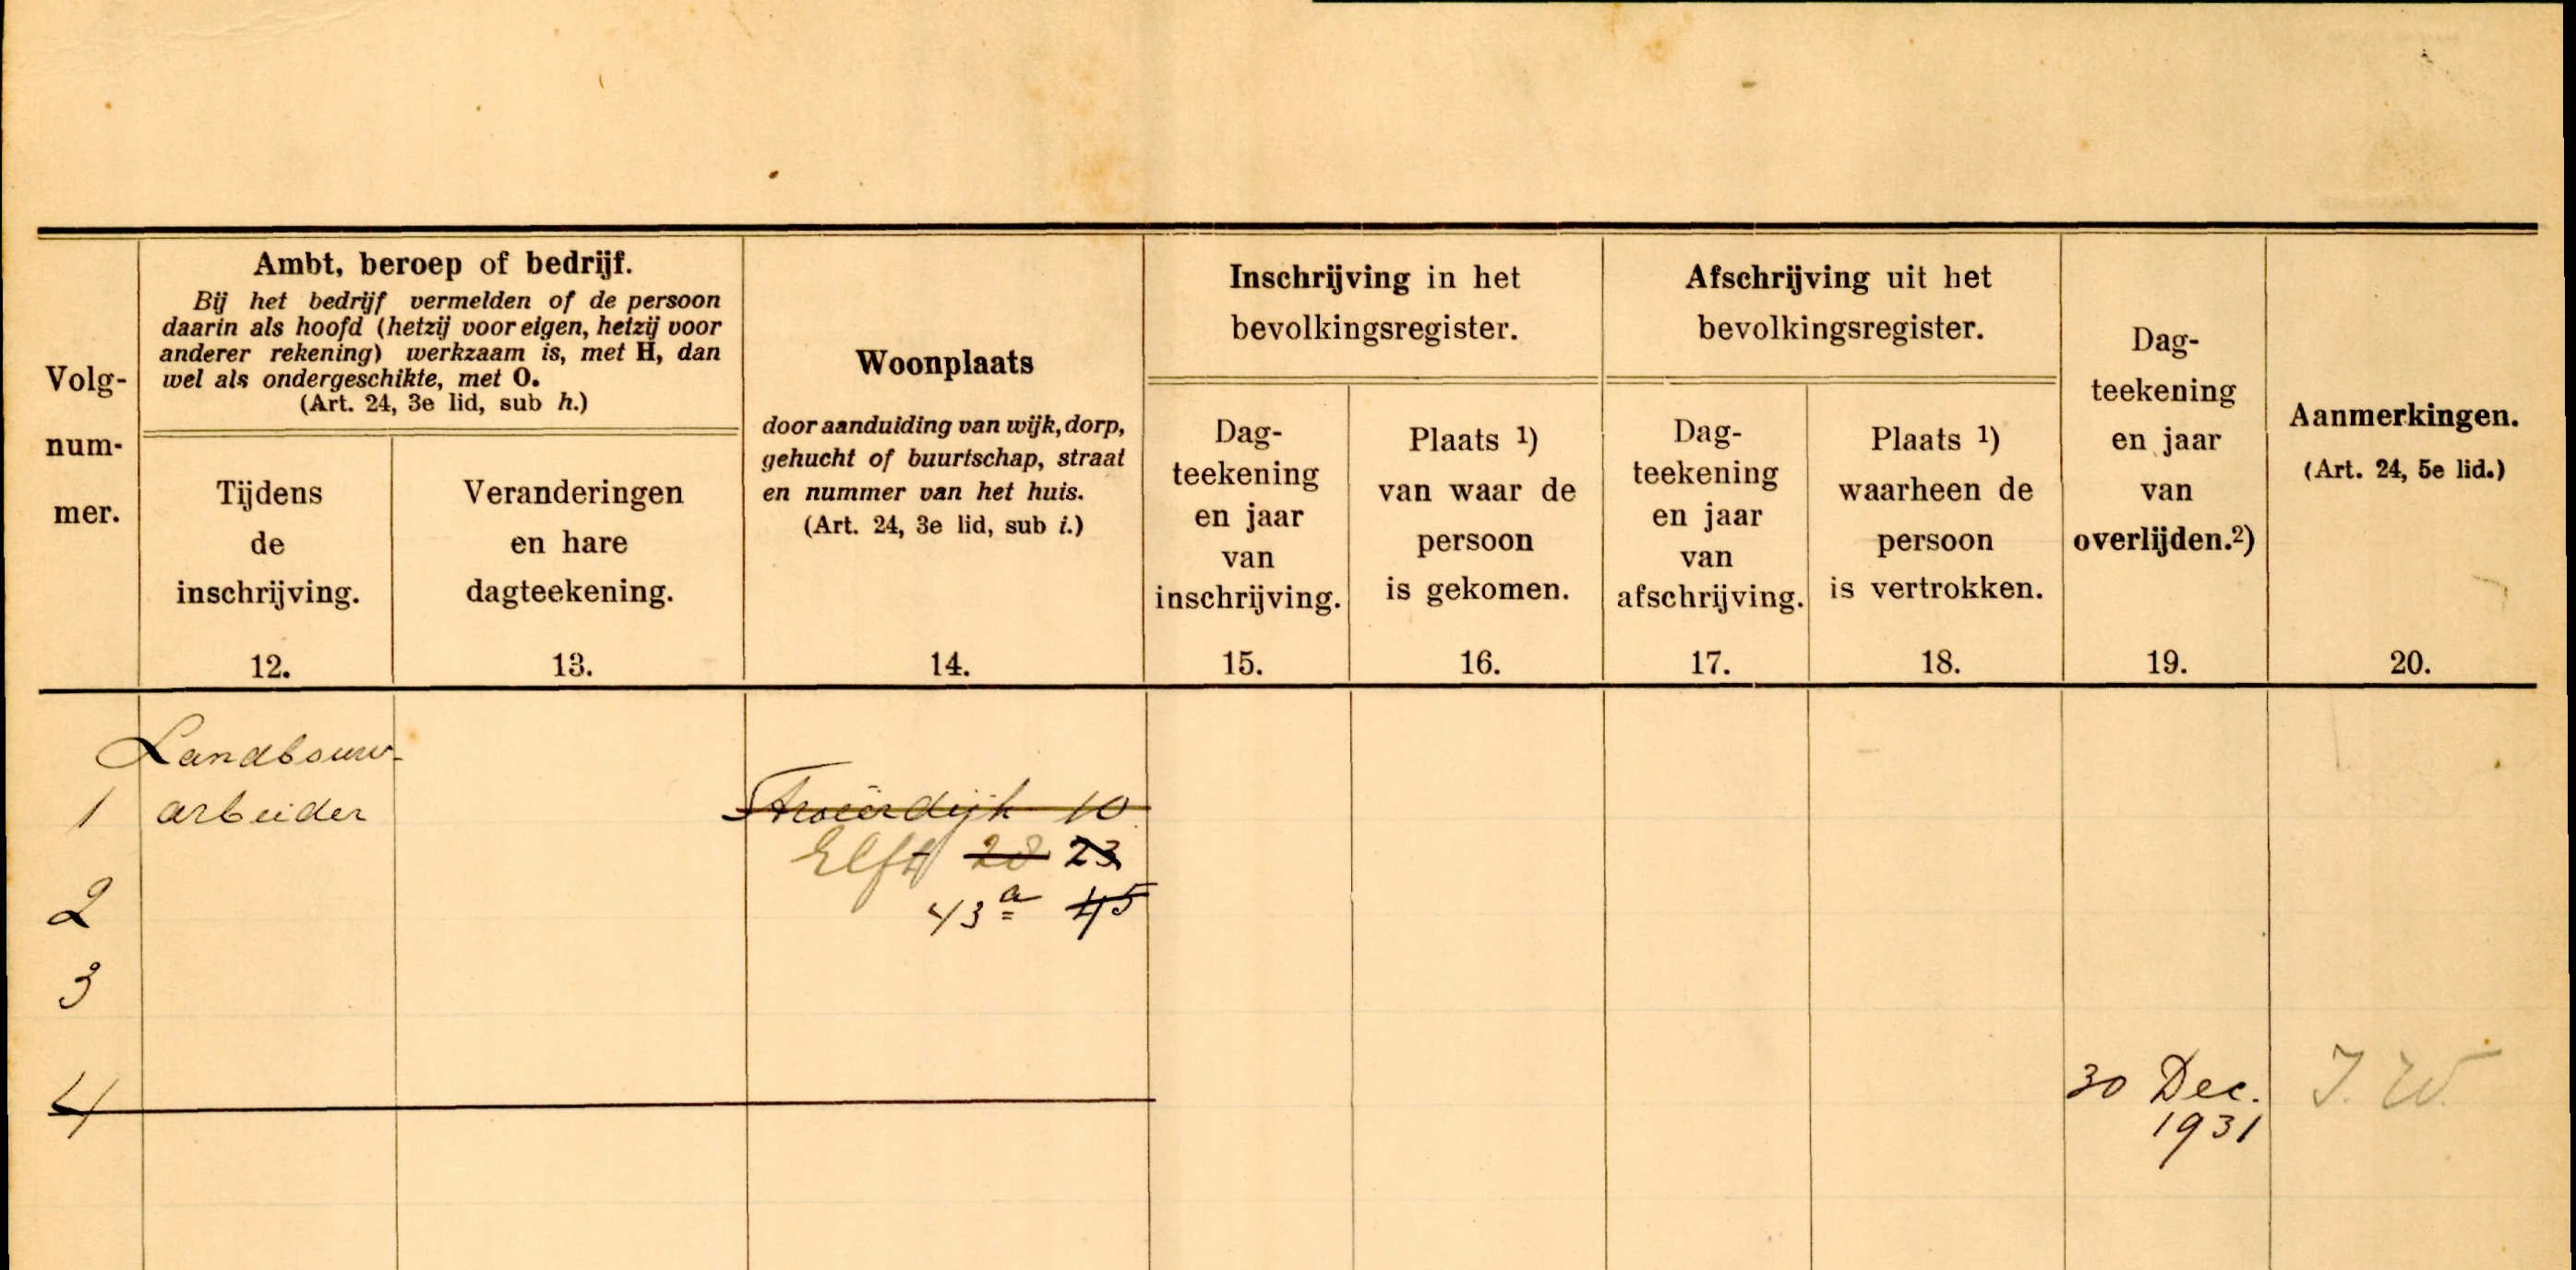 Volg-
num-
mer.
Ambt, beroep of bedrijf.
Bij het bedrijf vermelden of de persoon
daarin als hoofd (hetzij voor eigen, hetzij voor
anderer rekening) werkzaam is, met H, dan
wel als ondergeschikte, met O.
(Art. 24, 3e lid, sub h.)
Tijdens
de
inschrijving.
12.
Veranderingen
en hare
dagteekening.
13.
Woonplaats
door aanduiding van wijk, dorp,
gehucht of buurtschap, straat
en nummer van het huis.
(Art. 24, 3e lid, sub i.)
14.
Inschrijving in het
bevolkingsregister.
Dag-
teekening
en jaar
van
inschrijving.
15.
Plaats 1)
van waar de
persoon
is gekomen.
16.
Afschrijving uit het
bevolkingsregister.
Dag-
teekening
en jaar
van
afschrijving.
17.
Plaats 1)
waarheen de
persoon
is vertrokken.
18.
Dag-
teekening
en jaar
van
overlijden.2)
19.
Aanmerkingen.
(Art. 24, 5e lid.)
20.
Landbouw-
1 arbeider
10
28 23
2
43a 45
3
4
30 Dec.
1931